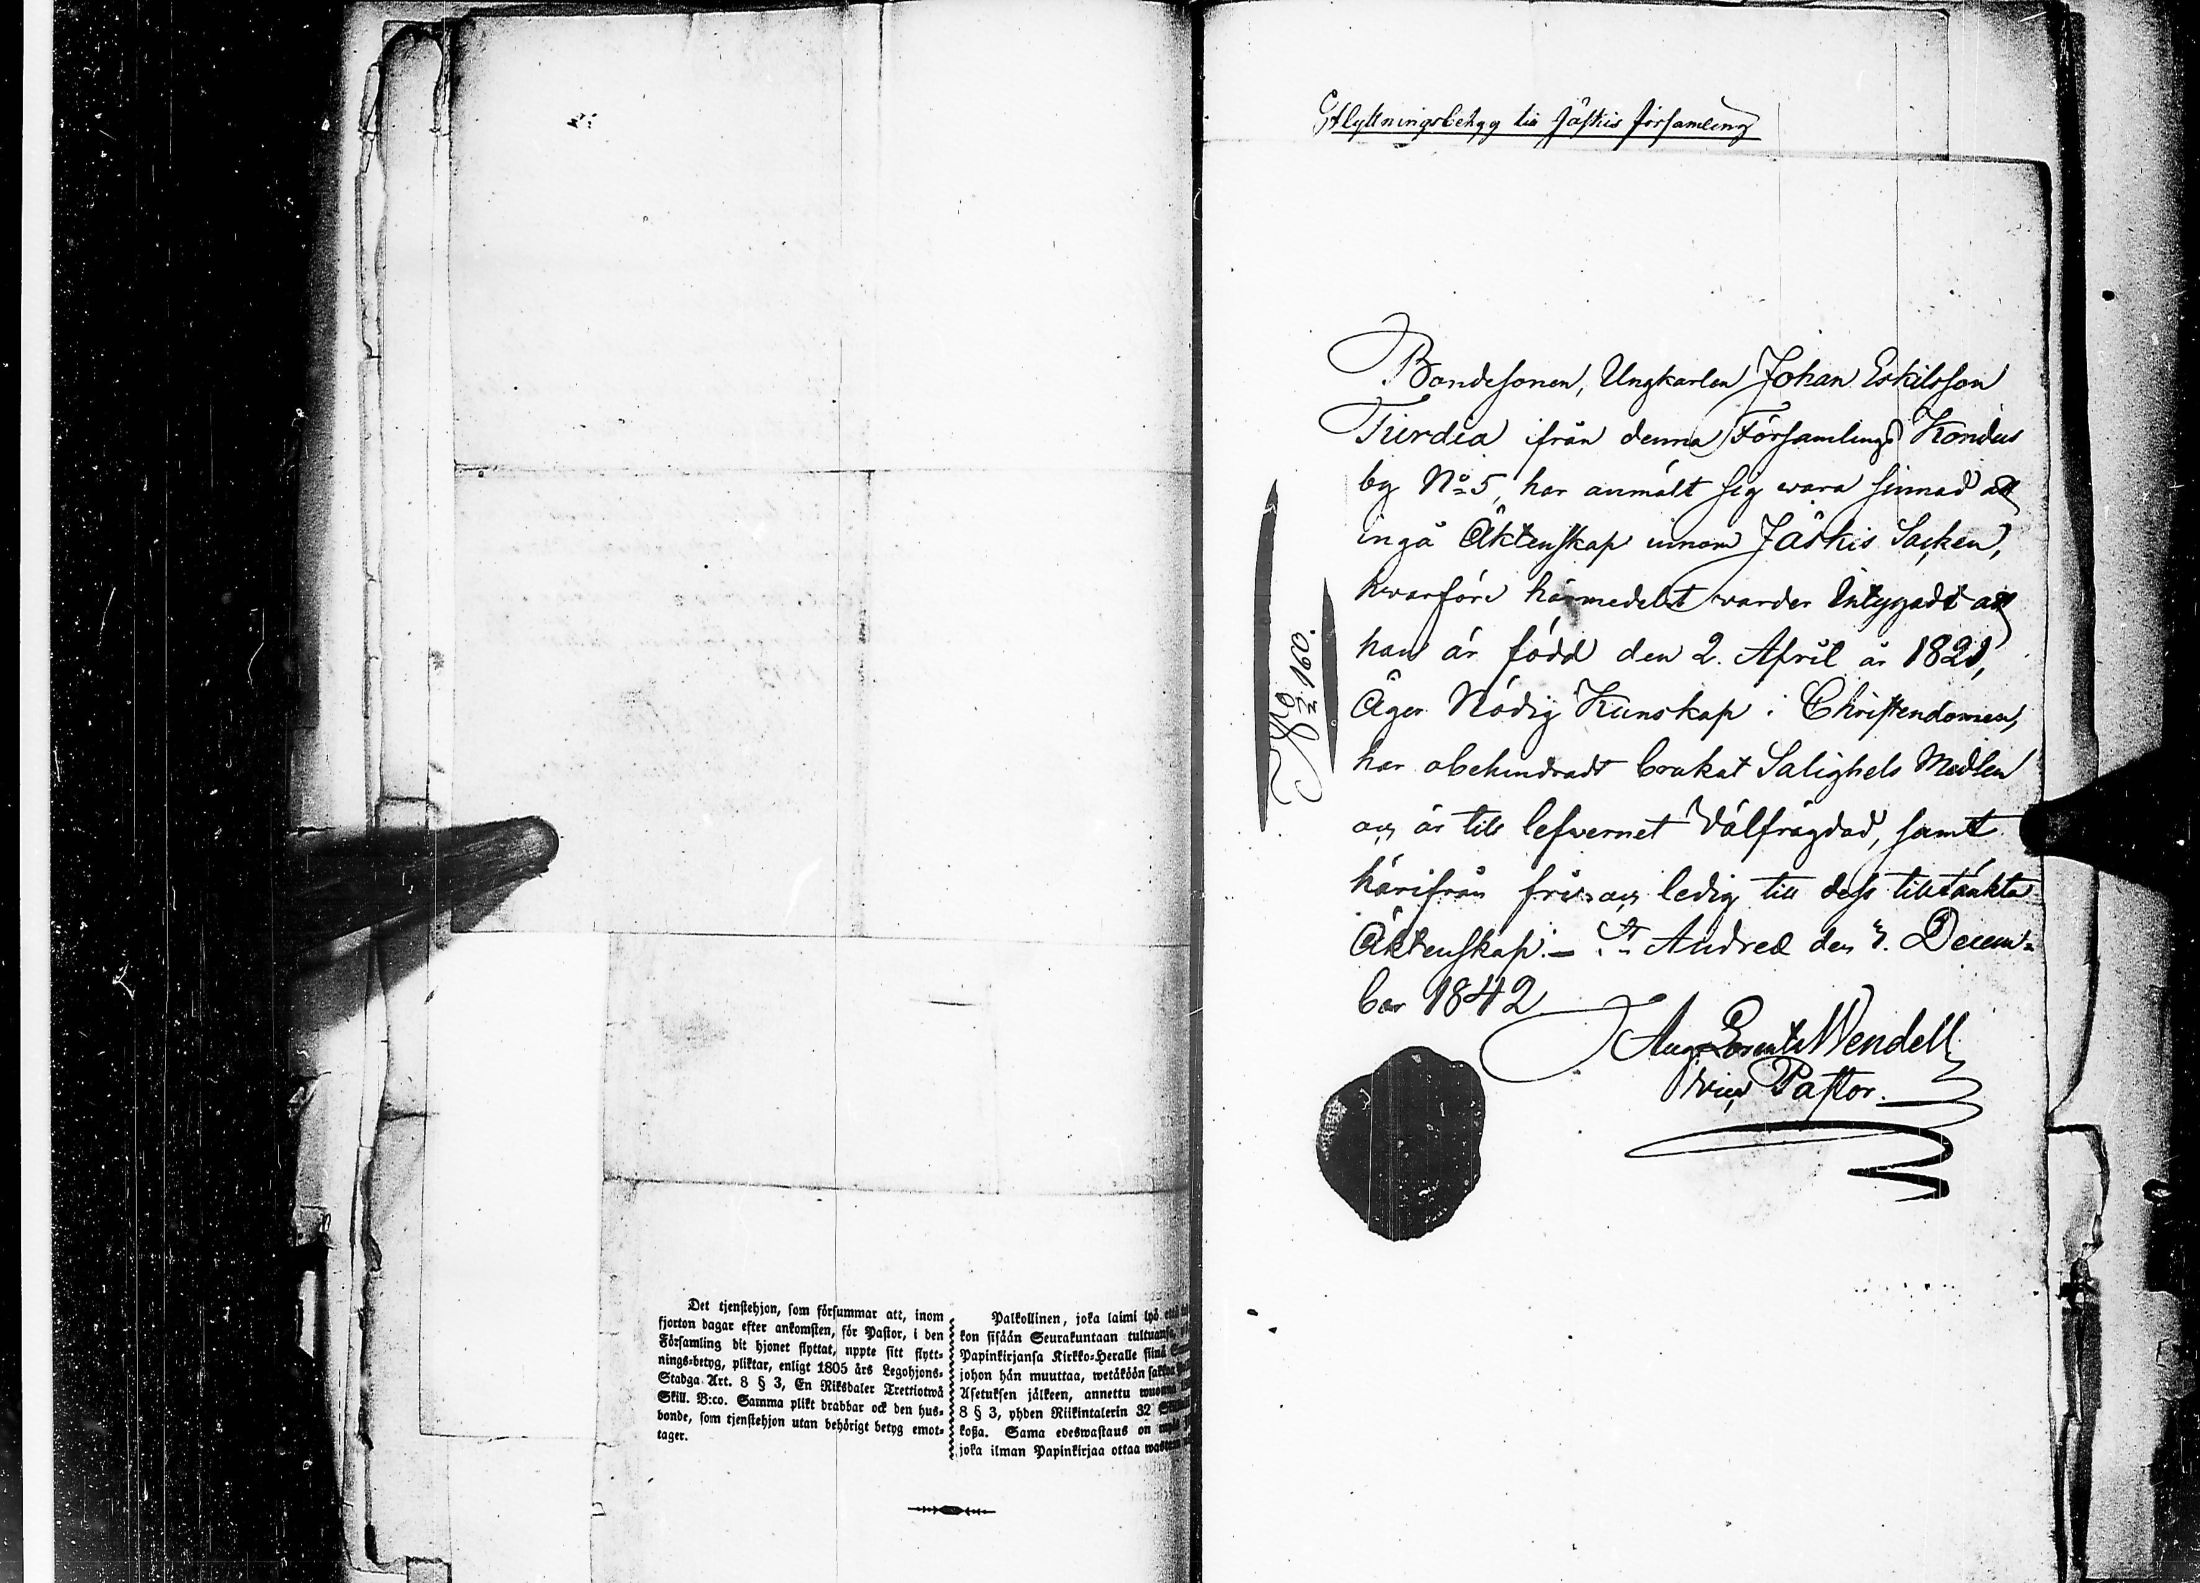 Det tjenstehjon, som försummar att, inom
fjorton dagar efter ankomsten, för Pastor, i den
Församling dit hjonet flyttat, uppte sitt flytt-
nings-betyg, pliktar, enligt 1805 års Legohjons-
Stadga Art. 8 § 3, En Riksdaler Trettiotwå
Skill. B:co. Samma plikt drabbar ock den hus-
bonde, som tjenstehjon utan behörigt betyg emot-
tager.
Palkollinen, joka laimi lyö että
kon sisään Seurakuntaan tultuansa,
Papinkirjansa Kirkko-Herralle siinä
johon hän muuttaa, wetäköön sakkoa
Asetuksen jälkeen, annettu wuonna
8 § 3, yhden Riikintalerin 32
koßa. Sama edeswastaus on
joka ilman Papinkirjaa ottaa
Flyttningsbetyg till Jäskis församling
Bondesonen, Ungkarlen Johan Eskilsson
Turdia ifrån denna Församlings Kondus
by No 5, har anmält sig wara sinnad att
ingå Äktenskap innom Jäskis Socken,
hwarföre härmedelst warder Intygadt att
han är född den 2. April år 1821,
Äger Nödig Kunskap i Christendomen,
har obehindradt brukat Salighets Medlen
och är till lefvernet Välfrägdad, samt
härifrån fri och ledig till dess tilltänkta
Äktenskap. — St Andreæ den 3. Decem-
ber 1842
Aug. Lorentz Wendell
Vice Pastor.
No 160.